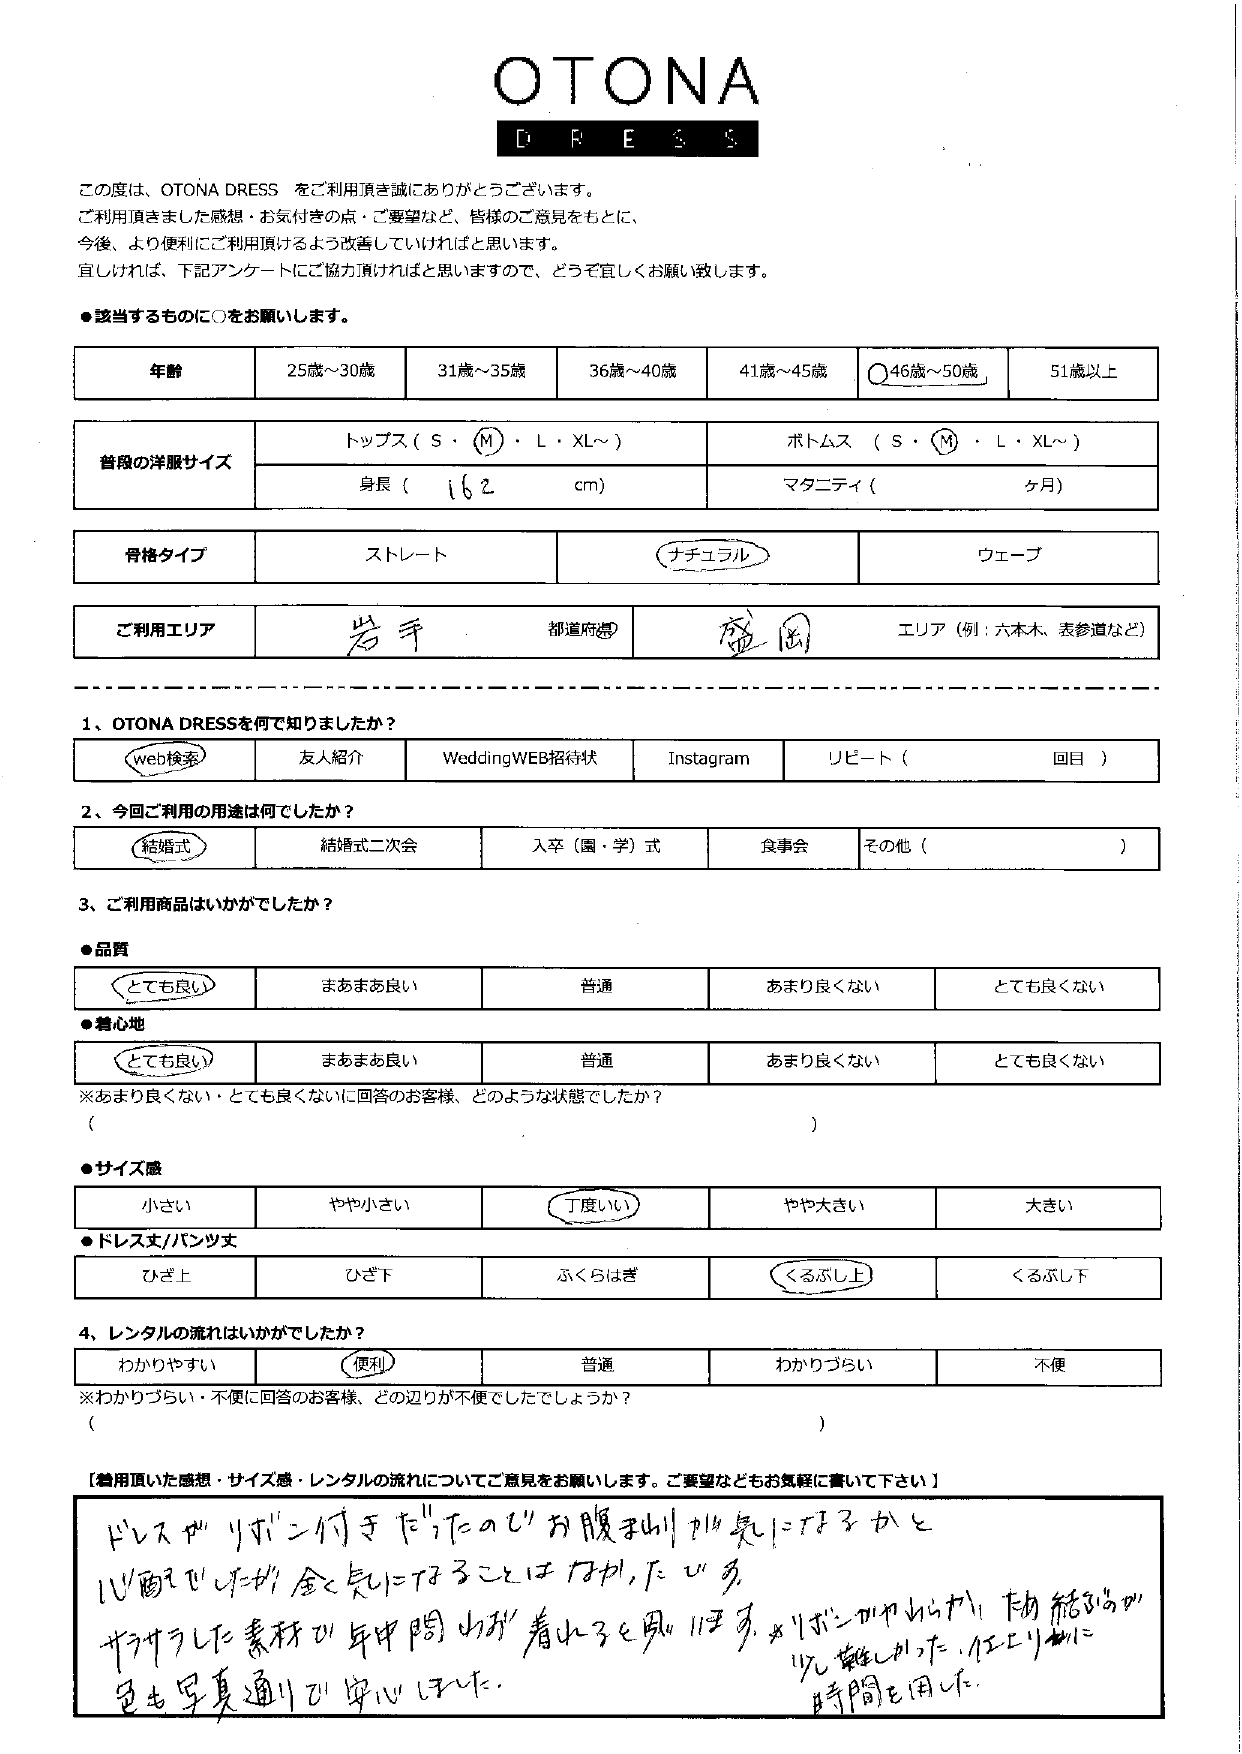 OTONA
DRESS
この度は、OTONA DRESS をご利用頂き誠にありがとうございます。
ご利用頂きました感想・お気付きの点・ご要望など、皆様のご意見をもとに、
今後、より便利にご利用頂けるよう改善していければと思います。
宜しければ、下記アンケートにご協力頂ければと思いますので、どうぞ宜しくお願い致します。
●該当するものに○をお願いします。
年齢 25歳～30歳 31歳～35歳 36歳～40歳 41歳～45歳 46歳～50歳 51歳以上
普段の洋服サイズ
トップス ( S ・ M ・ L ・ XL～ ) ボトムス ( S ・ M ・ L ・ XL～ )
身長 ( 162 cm) マタニティ ( ヶ月)
骨格タイプ ストレート ナチュラル ウェーブ
ご利用エリア 岩手 都道府県 盛岡 エリア（例：六本木、表参道など）
1、OTONA DRESSを何で知りましたか？
web検索 友人紹介 WeddingWEB招待状 Instagram リピート ( 回目 )
2、今回ご利用の用途は何でしたか？
結婚式 結婚式二次会 入卒（園・学）式 食事会 その他 ( )
3、ご利用商品はいかがでしたか？
●品質
とても良い まあまあ良い 普通 あまり良くない とても良くない
●着心地
とても良い まあまあ良い 普通 あまり良くない とても良くない
※あまり良くない・とても良くないに回答のお客様、どのような状態でしたか？
( )
●サイズ感
小さい やや小さい 丁度いい やや大きい 大きい
●ドレス丈/パンツ丈
ひざ上 ひざ下 ふくらはぎ くるぶし上 くるぶし下
4、レンタルの流れはいかがでしたか？
わかりやすい 便利 普通 わかりづらい 不便
※わかりづらい・不便に回答のお客様、どの辺りが不便でしたでしょうか？
( )
【着用頂いた感想・サイズ感・レンタルの流れについてご意見をお願いします。ご要望などもお気軽に書いて下さい】
ドレスがリボン付きだったのでお腹まわりが気になるかと
心配でしたが全く気になることはなかったです。
サラサラした素材で年中問わず着れると思います。
色も写真通りで安心しました。
※リボンがやわらかいため結ぶのが
少し難しかった。仕上りに
時間を用した。